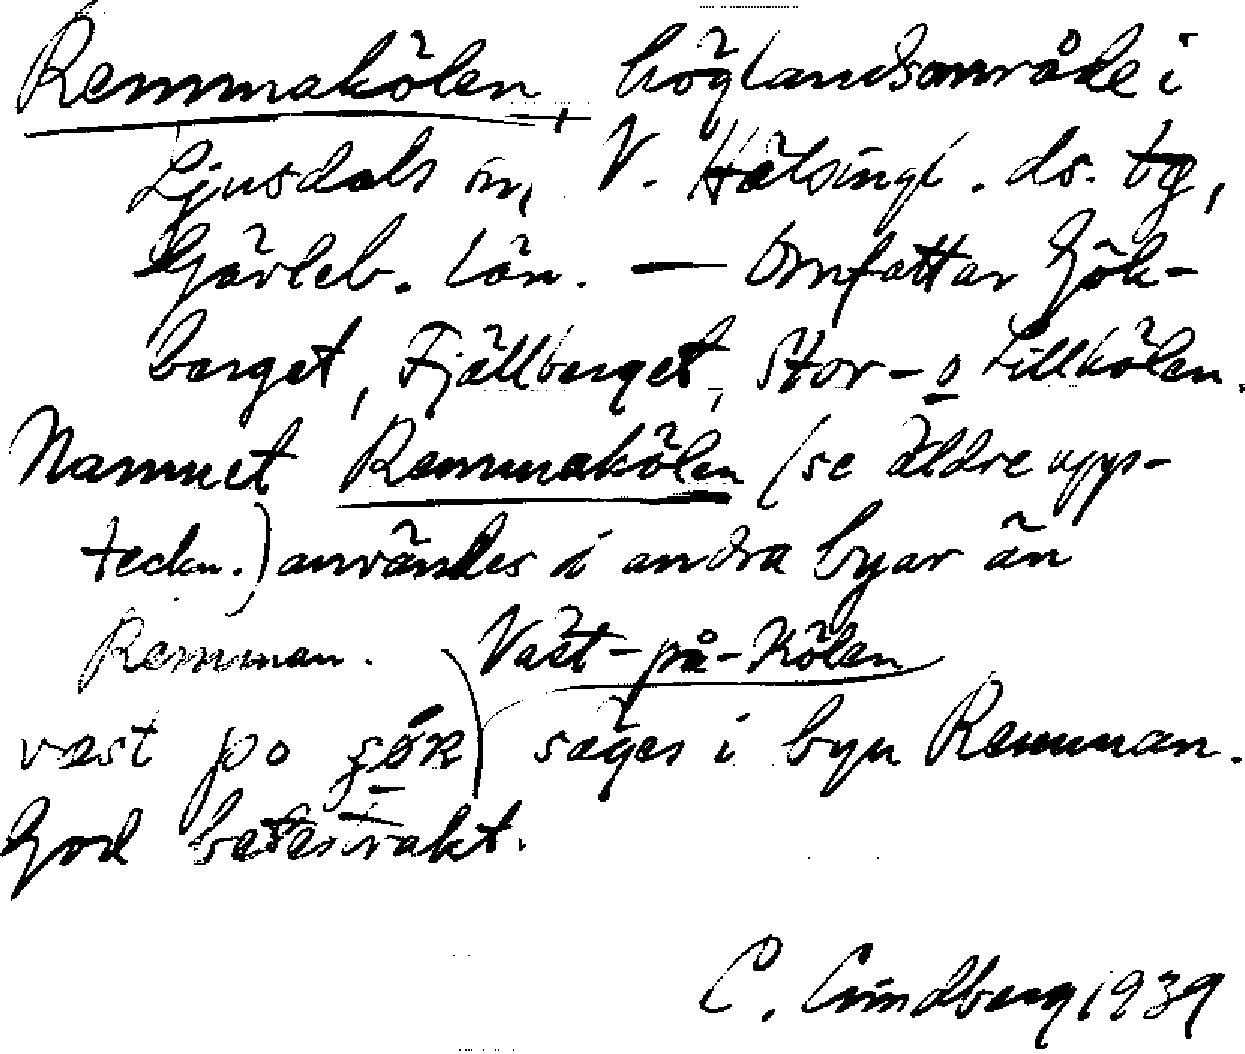 Remmakölen, höglandsområde i
Ljusdals sn, V. Hälsingl. ds. tg,
Gävleb. län. — Omfattar Gök-
berget, Fjällberget, Stor- o Lillkölen.
Namnet Remmakölen (se äldre upps-
teckn.) användes i andra byar än
Remman. Väst-på-Kölen
væst po
säges i byn Remman.
God betestrakt.
C. Lindberg 1939